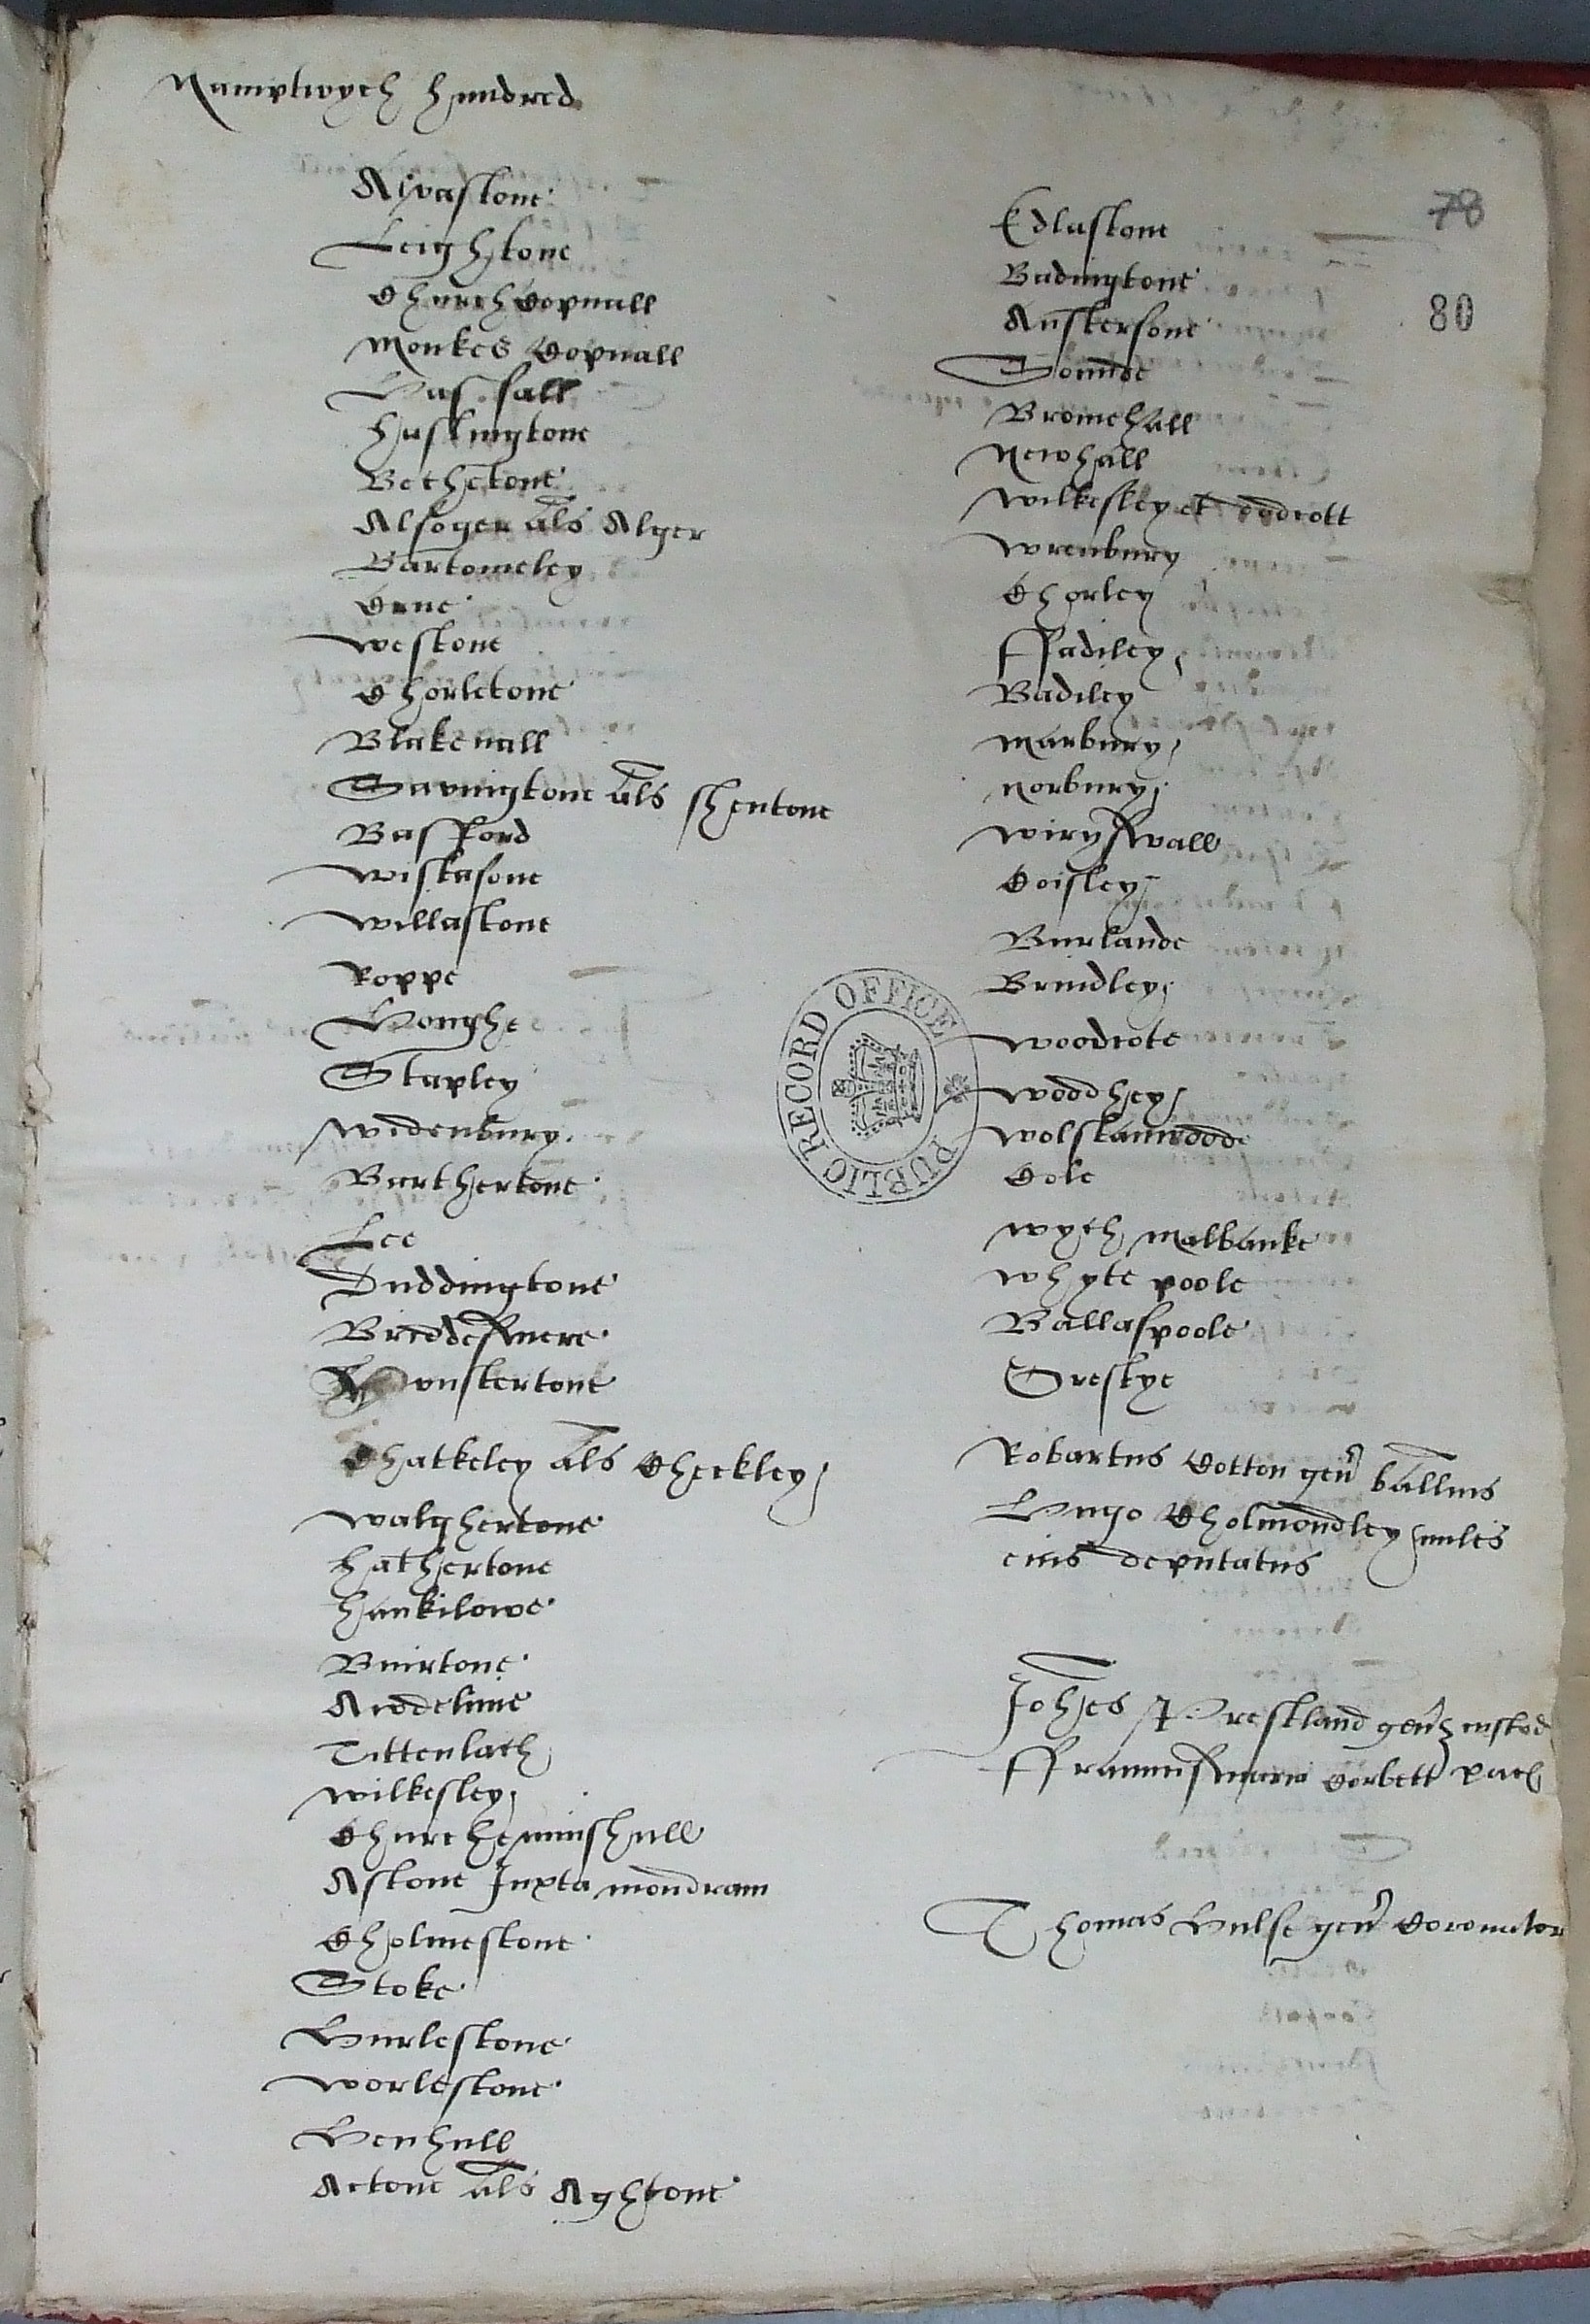 Namptwych hundred
Alvastone
Leightone
Church Copnall
Monkes Copnall
Has sall
haslingtone
Bechetone
Alsoger als Alger
Bartomeley
Crue
Westone
Chorletone
Blakenall
Gavingtone als shentone
Bassford
Wistasone
Willastone
Roppe
Houghe
Stapley
Widenbury
Burthertone
Lee
Duddingtone
Briddesmere
Honstertone
Chatkeley als Checkley
Walghertone
hathertone
hankilowe
Buirtone
Audelime
Tittenlach
Wilkesley
Churcheminshull
Astone Juxta mondram
Cholmestone
Stoke
Hurlestone
Worlestone
Henhull
Actone als Aghtone
Edlastone
Badingtone
Austersone
Sounde
Bromehall
Newhall
Wilkesley et dodcott
Wrenbury
Chorley
ffadiley
Badiley
Marbury
Norbury
Wiryswall
Coisley
Burlande
Brindley
Woodcote
Woodhey
Wolstanwood
Cole
Wych malbanke
Whyte poole
Ballaspoole
Grestye
78
80
Robartus Cotton gen ballius
Hugo Cholmondley miles
eius deputatus
Johes Prestland gen custod
Corbett pach
Thomas Hulse gen Coronator
PUBLIC RECORD OFFICE